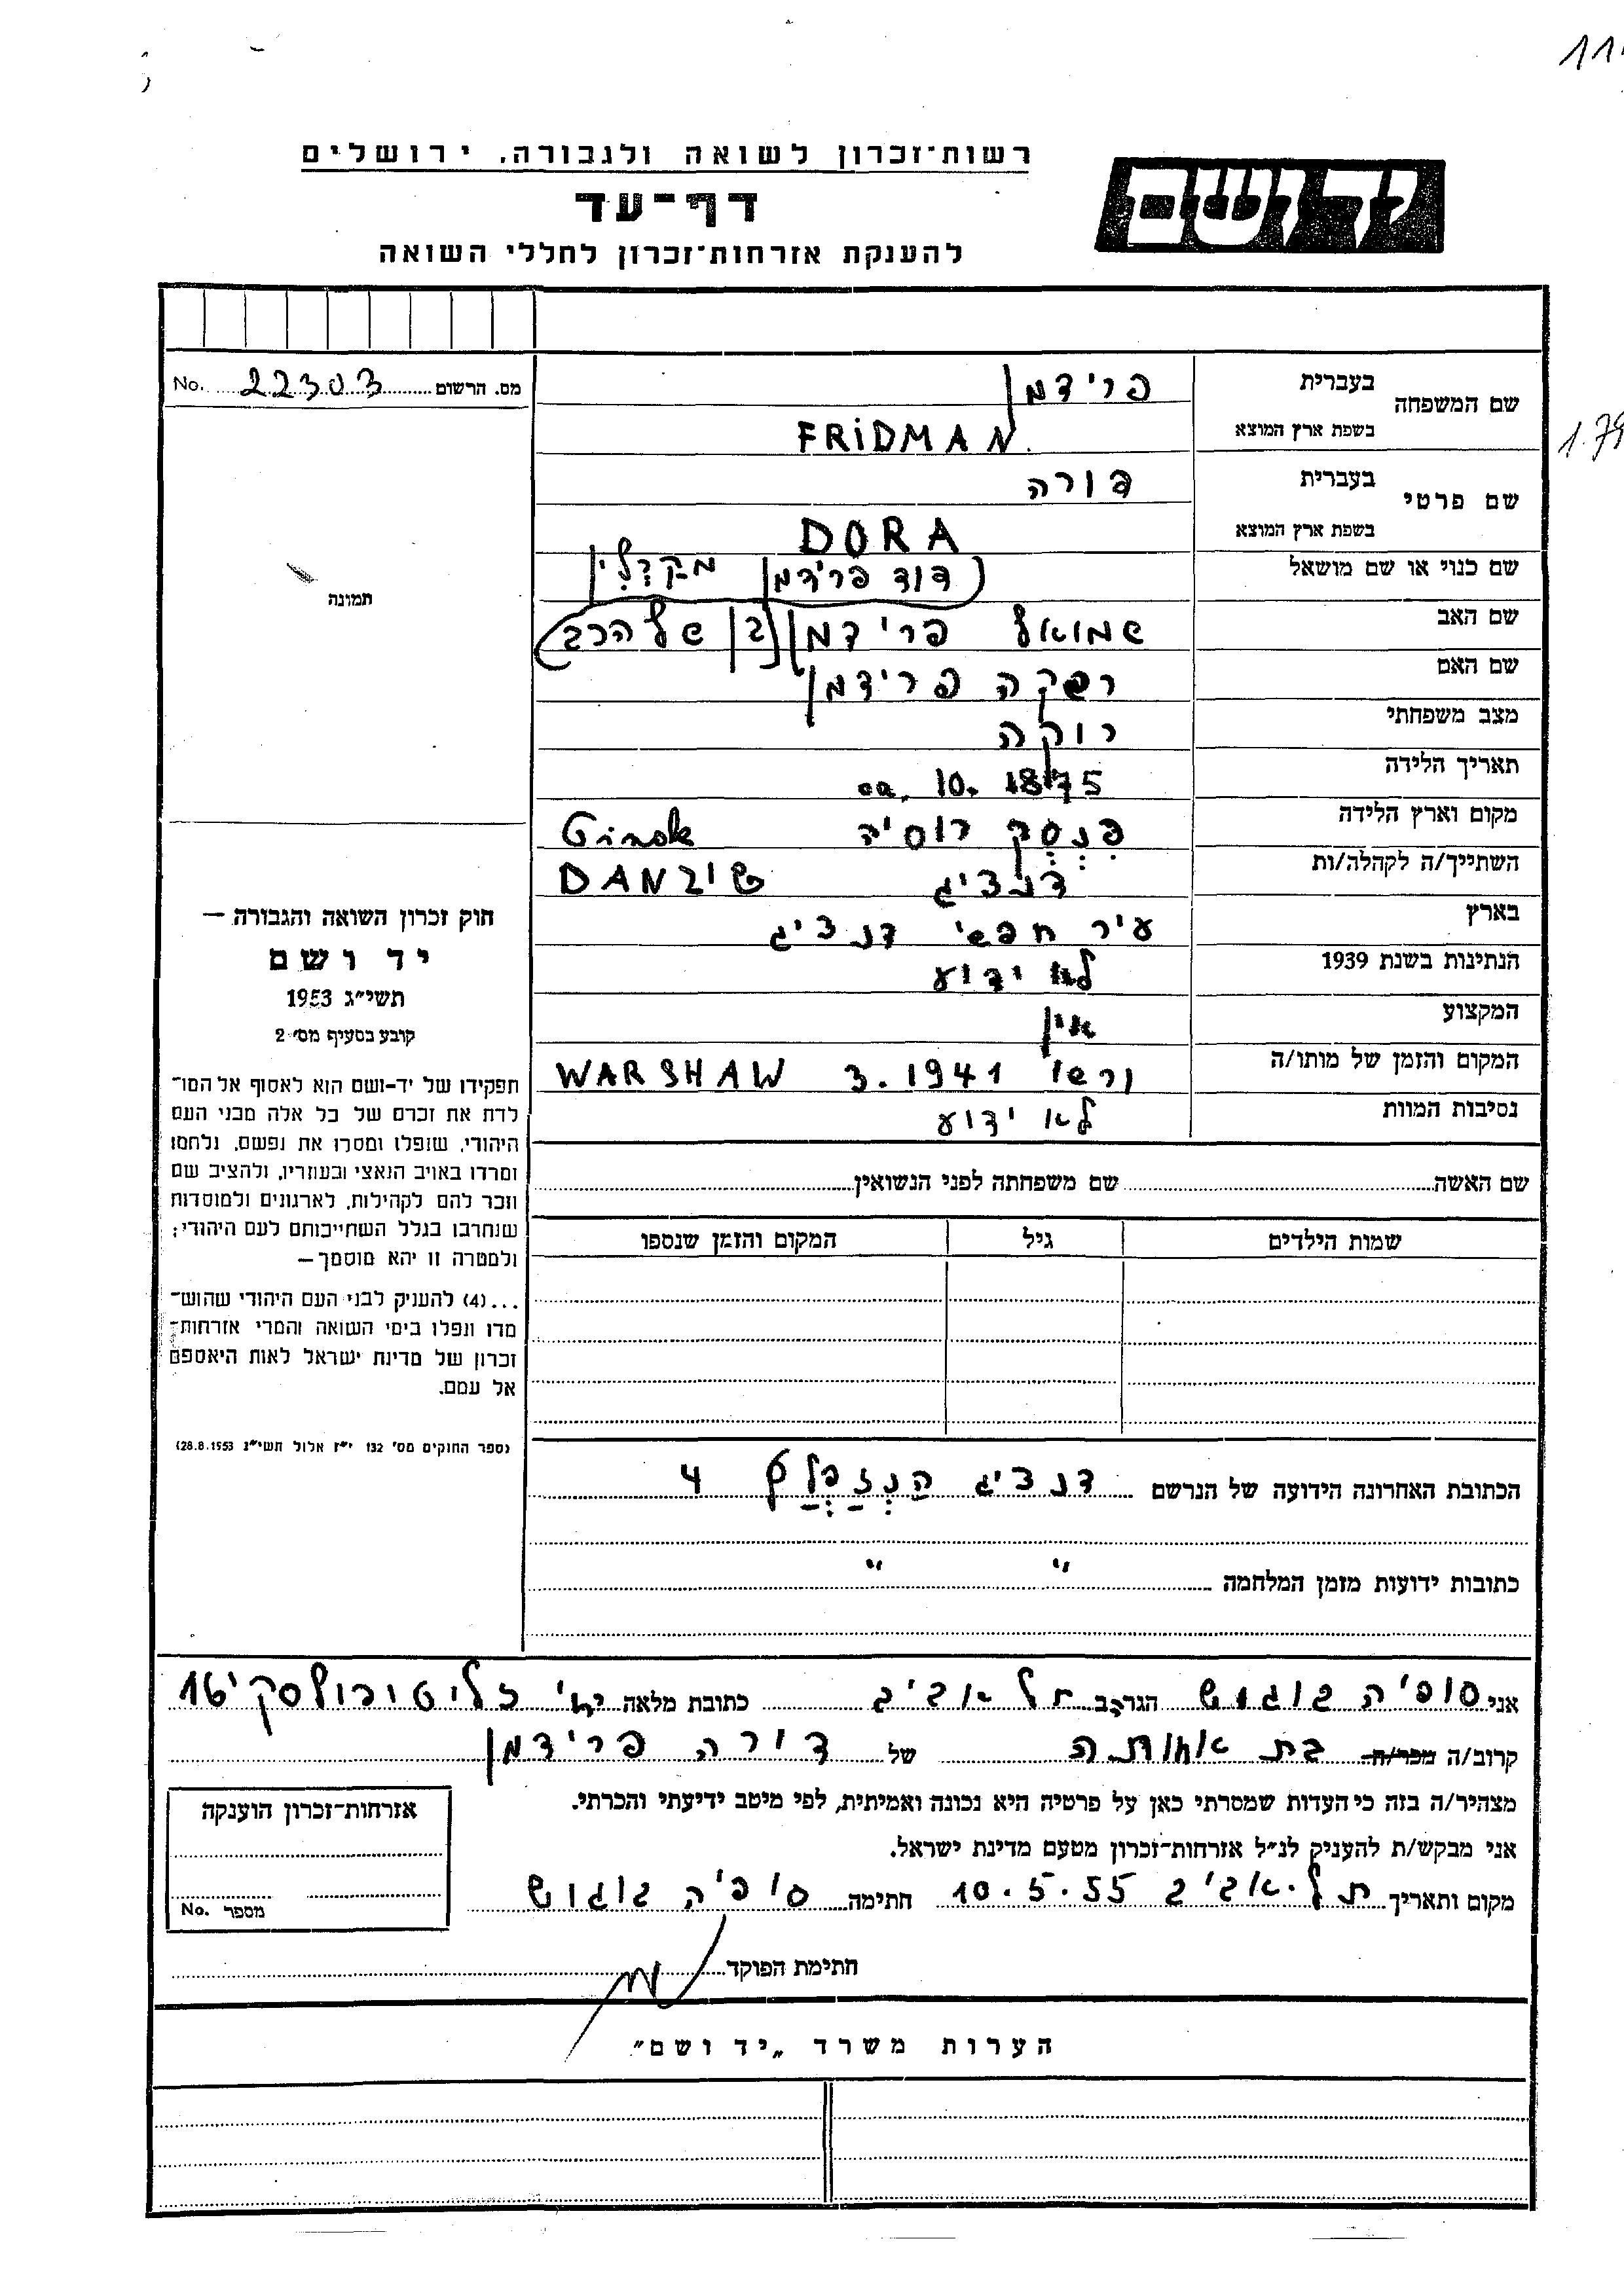 רשות־זכרון לשואה ולגבורה, ירושלים
יד ושם
דף־עד
להענקת אזרחות־זכרון לחללי השואה
מס. הרשום 22303 No.
שם המשפחה
בעברית פרידמן
בשפת ארץ המוצא FRiDMAN
שם פרטי
בעברית דורה
בשפת ארץ המוצא DORA
שם כנוי או שם מושאל (דוד פרידמן מקרלין
שם האב שמואל פרידמן (בן של הרב
שם האם רבקה פרידמן
מצב משפחתי רוקה
תאריך הלידה 00. 10. 1875
מקום וארץ הלידה פינסק רוסיה
השתייך/ה לקהלה/ות דנציג DANZIG
בארץ עיר חפשי דנציג
הנתינות בשנת 1939 לא ידוע
המקצוע אין
המקום והזמן של מותו/ה ורשו 3.1941 WARSHAW
נסיבות המוות לא ידוע
שם האשה שם משפחתה לפני הנשואין
שמות הילדים גיל המקום והזמן שנספו
הכתובת האחרונה הידועה של הנרשם דנציג הנזפלץ 4
כתובות ידועות מזמן המלחמה " "
תמונה
חוק זכרון השואה והגבורה —
יד ושם
תשי״ג 1953
קובע בסעיף מס׳ 2
תפקידו של יד־ושם הוא לאסוף אל המו־
לדת את זכרם של כל אלה מבני העם
היהודי, שנפלו ומסרו את נפשם, נלחמו
ומרדו באויב הנאצי ובעוזריו, ולהציב שם
וזכר להם לקהילות, לארגונים ולמוסדות
שנחרבו בגלל השתייכותם לעם היהודי;
ולמטרה זו יהא מוסמך —
...(4) להעניק לבני העם היהודי שהוש־
מדו ונפלו בימי השואה והמרי אזרחות־
זכרון של מדינת ישראל לאות היאספם
אל עמם.
(ספר החוקים מס׳ 132 י״ז אלול תשי״ג 28.8.1953)
אני סופיה בוגוש הגר/ה ב תל אביב כתובת מלאה
קרוב/ה מכר/ה בת אחותה של דורה פרידמן
מצהיר/ה בזה כי העדות שמסרתי כאן על פרטיה היא נכונה ואמיתית, לפי מיטב ידיעתי והכרתי.
אני מבקש/ת להעניק לנ״ל אזרחות־זכרון מטעם מדינת ישראל.
מקום ותאריך תל-אביב 10.5.55 חתימה סופיה בוגוש
אזרחות־זכרון הוענקה
מספר No.
חתימת הפוקד
הערות משרד „יד ושם״